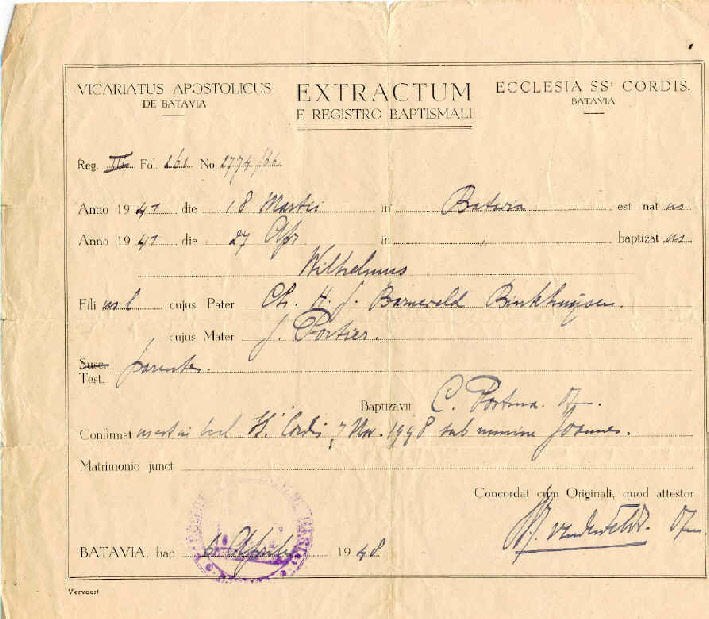 VICARIATUS APOSTOLICUS
DE BATAVIA
EXTRACTUM
E REGISTRO BAPTISMALI
ECCLESIA SSi CORDIS.
BATAVIA
Reg. III Fo. 161 No 2774
Anno 1941 die 18 Martii in Batavia est nat us
Anno 1941 die 27 Apr in „ baptizat us
Wilhelmus
Fili us l cujus Pater Ch. H. J. Barneveld Binkhuysen.
cujus Mater J. Portier.
Susc.
Test. parentes.
Baptizavit C.
Confirmat Cordis, 7 Nov. 1948 sub nomine Joannes.
Matrimonio junct
Concordat cum Originali, quod attestor
BATAVIA, hac 1948
Vervoort